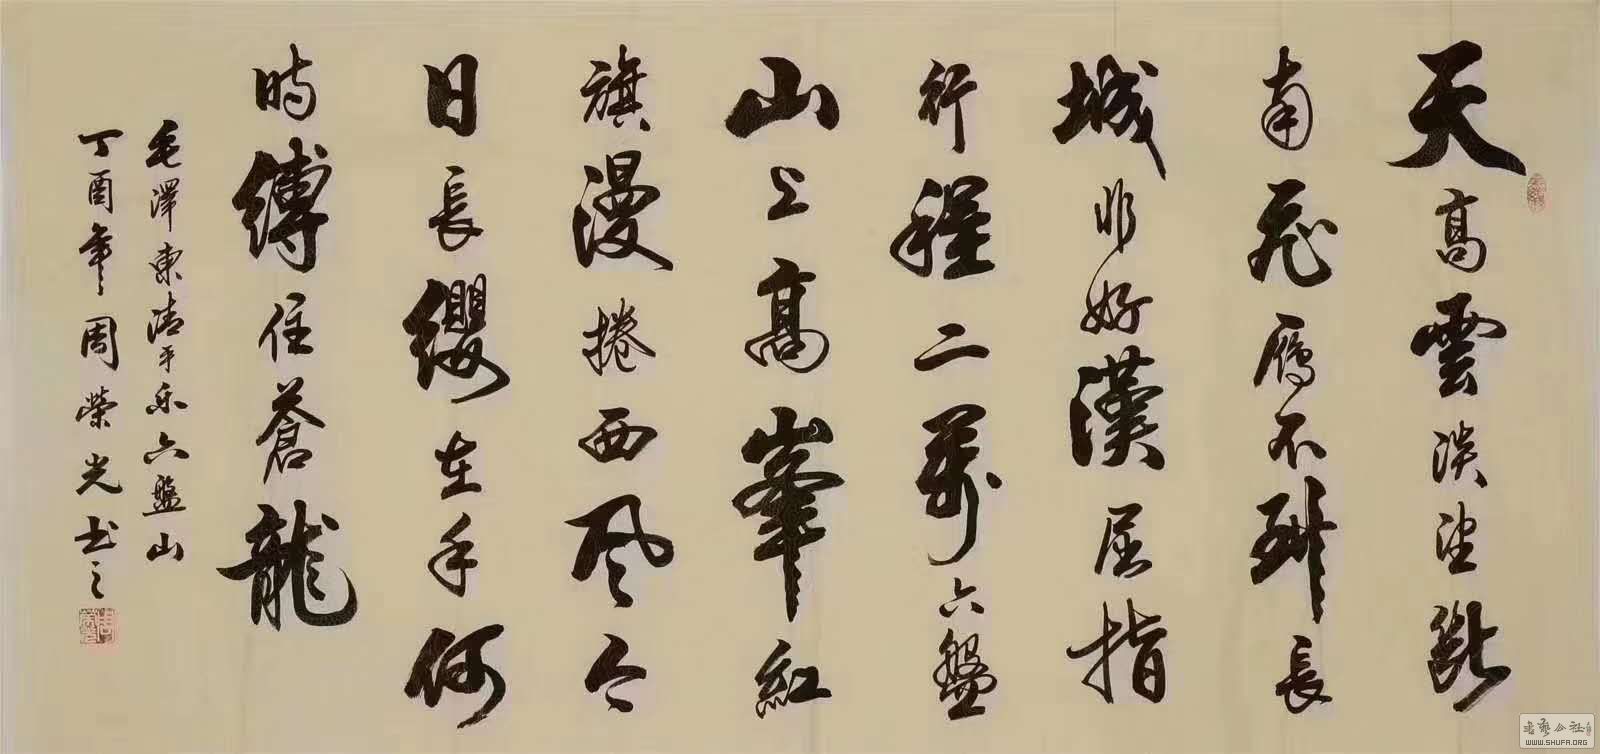 天高雲淡望斷
南飛雁不到長
城非好漢屈指
行程二萬六盤
山上高峯紅
旗漫捲西風今
日長纓在手何
時縛住蒼龍
毛澤東清平乐六盤山
丁酉年周榮光书之
WWW.SHUFA.ORG